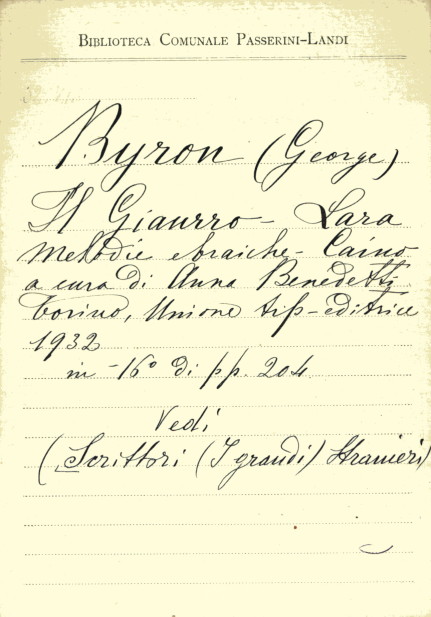 BIBLIOTECA COMUNALE PASSERINI-LANDI
Byron (George)
Il Giaurro - Lara
Melodie ebraiche - Caino
a cura di Anna Benedetti
Torino, Unione tip-editrice
1932
in -16° di pp. 204
Vedi
(Scrittori (I grandi) Stranieri)